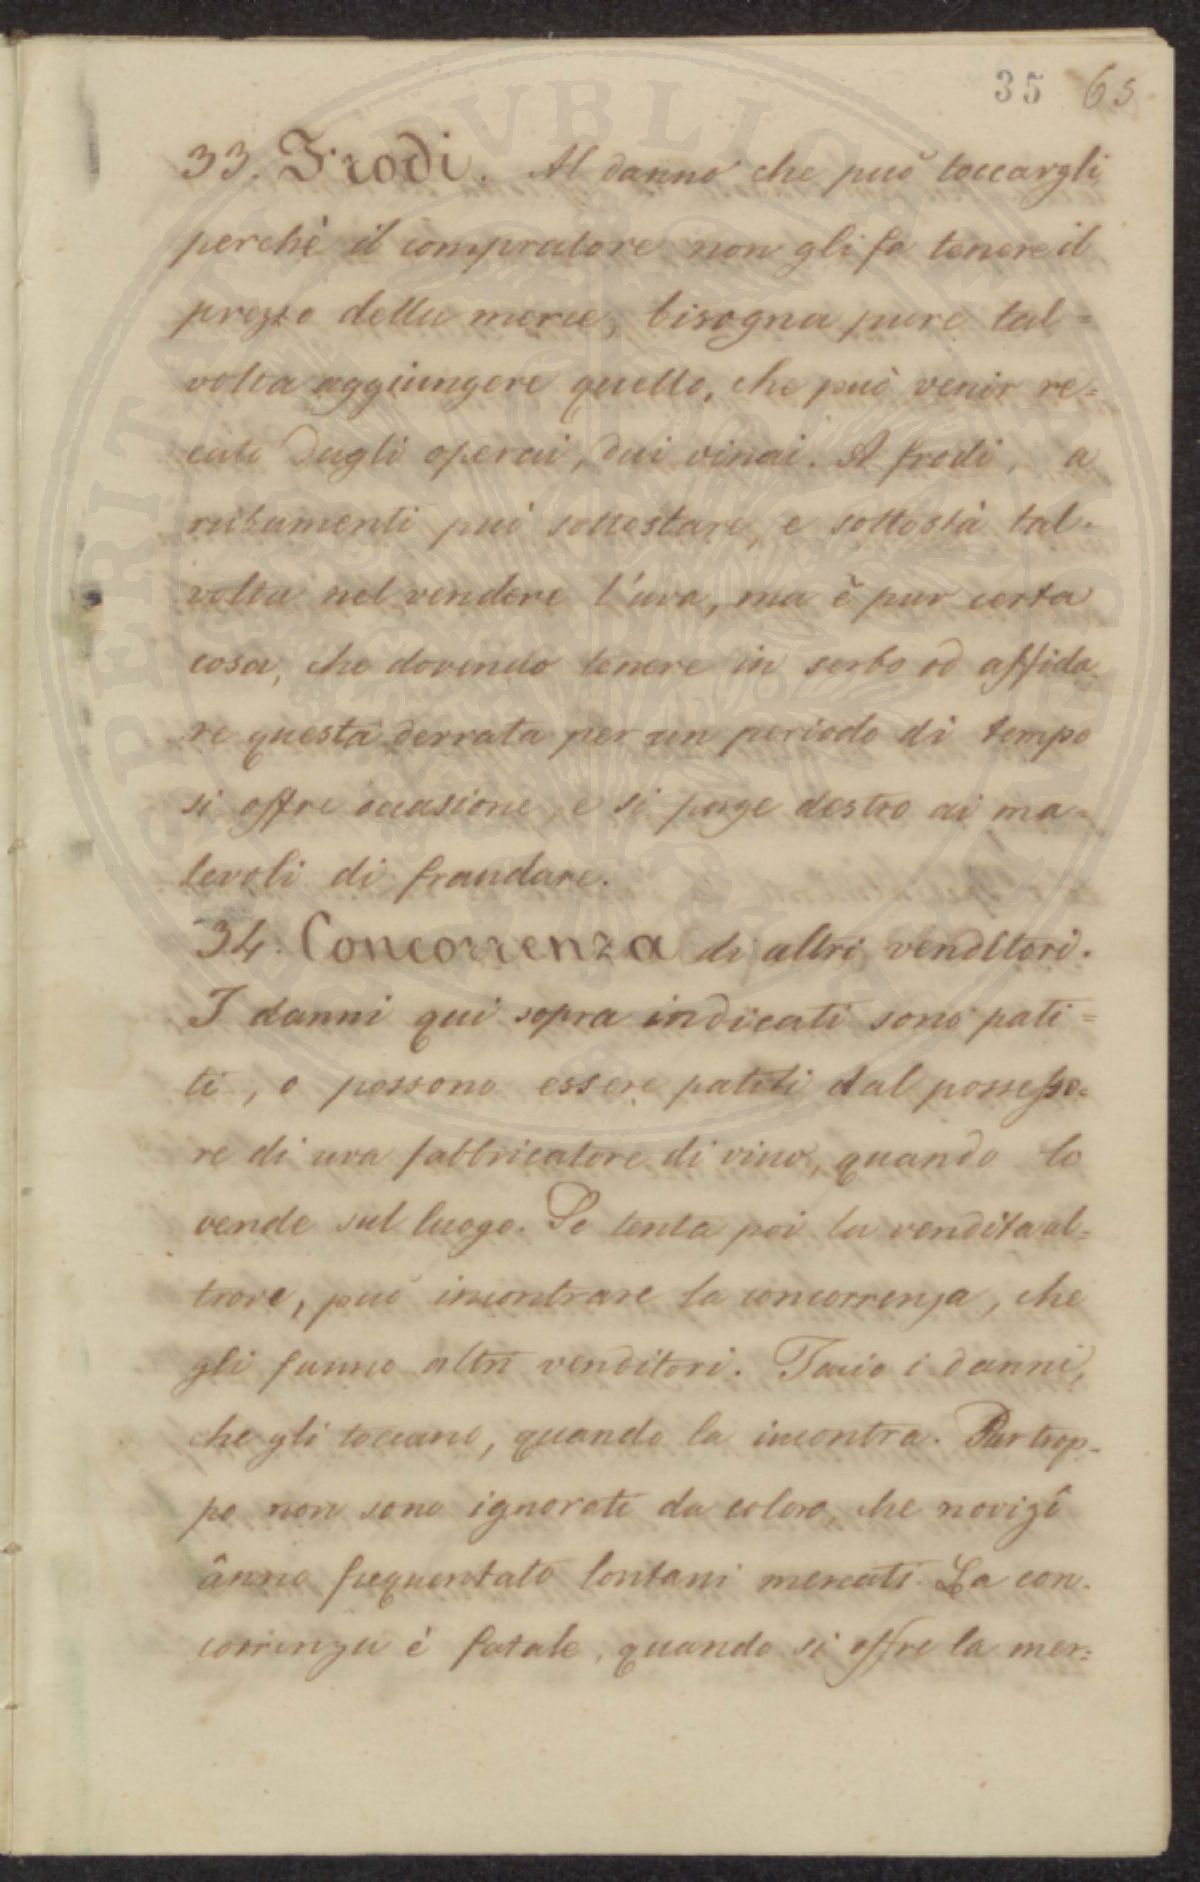 35 65
33. Frodi. Al danno che può toccargli
perchè il compratore non gli fa tenere il
prezzo della merce, bisogna pure tal=
volta aggiungere quello, che può venir re=
cato dagli operai, dai vinai. A frodi, a
rubamenti può sottostare, e sottostà tal=
volta nel vendere l'uva, ma è pur certa
cosa, che dovendo tenere in serbo od affida
re questa derrata per un periodo di tempo
si offre occasione, e si porge destro ai ma=
levoli di fraudare.
34. Concorrenza di altri venditori.
I danni qui sopra indicati sono pati=
ti, o possono essere patiti dal possesso=
re di uva fabbricatore di vino, quando lo
vende sul luogo. Se tenta poi la vendita al=
trove, può incontrare la concorrenza, che
gli fanno altri venditori. Taccio i danni,
che gli toccano, quando la incontra. Pur trop=
po non sono ignorati da coloro, che
ânno frequentato lontani mercati. La con=
correnza è fatale, quando si offre la mer=
PERITATI PVBLICAE